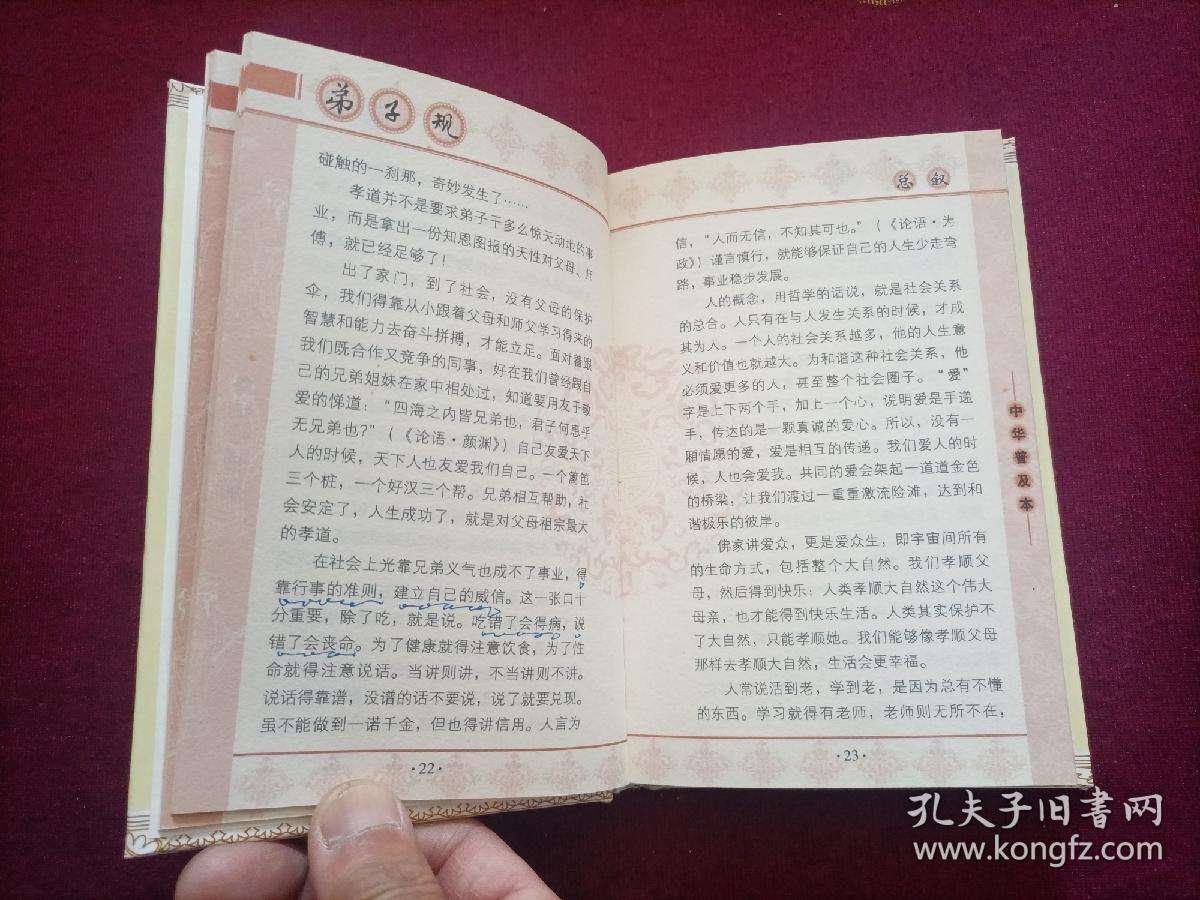 弟子规
碰触的一刹那，奇妙发生了……
孝道并不是要求弟子干多么惊天动地的事
业，而是拿出一份知恩图报的天性对父母、师
傅，就已经足够了！
出了家门，到了社会，没有父母的保护
伞，我们得靠从小跟着父母和师父学习得来的
智慧和能力去奋斗拼搏，才能立足。面对着跟
我们既合作又竞争的同事，好在我们曾经跟自
己的兄弟姐妹在家中相处过，知道要用友于敬
爱的悌道：“四海之内皆兄弟也，君子何患乎
无兄弟也？”（《论语·颜渊》）自己友爱天下
人的时候，天下人也友爱我们自己。一个篱笆
三个桩，一个好汉三个帮。兄弟相互帮助，社
会安定了，人生成功了，就是对父母祖宗最大
的孝道。
在社会上光靠兄弟义气也成不了事业，得
靠行事的准则，建立自己的威信。这一张口十
分重要，除了吃，就是说。吃错了会得病，说
错了会丧命。为了健康就得注意饮食，为了性
命就得注意说话。当讲则讲，不当讲则不讲。
说话得靠谱，没谱的话不要说，说了就要兑现。
虽不能做到一诺千金，但也得讲信用。人言为
·22·
总叙
信，“人而无信，不知其可也。”（《论语·为
政》）谨言慎行，就能够保证自己的人生少走弯
路，事业稳步发展。
人的概念，用哲学的话说，就是社会关系
的总合。人只有在与人发生关系的时候，才成
其为人。一个人的社会关系越多，他的人生意
义和价值也就越大。为和谐这种社会关系，他
必须爱更多的人，甚至整个社会圈子。“爱”
字是上下两个手，加上一个心，说明爱是手递
手，传达的是一颗真诚的爱心。所以，没有一
厢情愿的爱，爱是相互的传递。我们爱人的时
候，人也会爱我。共同的爱会架起一道道金色
的桥梁，让我们渡过一重重激流险滩，达到和
谐极乐的彼岸。
佛家讲爱众，更是爱众生，即宇宙间所有
的生命方式，包括整个大自然。我们孝顺父
母，然后得到快乐；人类孝顺大自然这个伟大
母亲，也才能得到快乐生活。人类其实保护不
了大自然，只能孝顺她。我们能够像孝顺父母
那样去孝顺大自然，生活会更幸福。
人常说活到老，学到老，是因为总有不懂
的东西。学习就得有老师，老师则无所不在，
·23·
中华普及本
孔夫子旧书网
www.kongfz.com